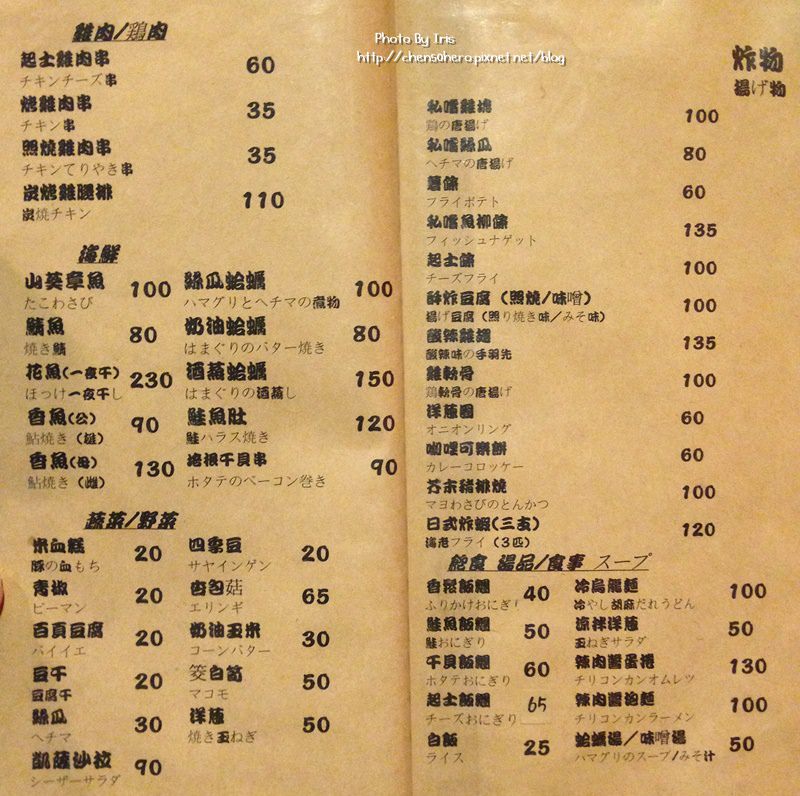 Photo By Iris
http://chen50hero.pixnet.net/blog
雞肉/鶏肉
起士雞肉串 60
チキンチーズ串
烤雞肉串 35
チキン串
照燒雞肉串 35
チキンてりやき串
炭烤雞腿排 110
炭焼チキン
海鮮
山葵章魚 100
たこわさび
鯖魚 80
焼き鯖
花魚(一夜干) 230
ほっけ一夜干し
香魚(公) 90
鮎焼き (雄)
香魚(母) 130
鮎焼き (雌)
絲瓜蛤蠣 100
ハマグリとヘチマの煮物
奶油蛤蠣 80
はまぐりのバター焼き
酒蒸蛤蠣 150
はまぐりの酒蒸し
鮭魚肚 120
鮭ハラス焼き
培根干貝串 90
ホタテのベーコン巻き
蔬菜/野菜
米血糕 20
豚の血もち
青椒 20
ピーマン
百頁豆腐 20
バイイエ
豆干 20
豆腐干
絲瓜 30
ヘチマ
凱薩沙拉 90
シーザーサラダ
四季豆 20
サヤインゲン
杏包菇 65
エリンギ
奶油玉米 30
コーンバター
筊白筍 50
マコモ
洋蔥 50
焼き玉ねぎ
炸物
揚げ物
私嚐雞塊 100
鶏の唐揚げ
私嚐絲瓜 80
ヘチマの唐揚げ
薯條 60
フライポテト
私嚐魚柳條 135
フィッシュナゲット
起士條 100
チーズフライ
酥炸豆腐 (照燒/味噌) 100
揚げ豆腐 (照り焼き味/みそ味)
酸辣雞翅 135
酸辣味の手羽先
雞軟骨 100
鶏軟骨の唐揚げ
洋蔥圈 60
オニオンリング
咖哩可樂餅 60
カレーコロッケー
芥末豬排燒 100
マヨわさびのとんかつ
日式炸蝦(三支) 120
海老フライ (3匹)
飽食 湯品/食事 スープ
香鬆飯糰 40
ふりかけおにぎり
鮭魚飯糰 50
鮭おにぎり
干貝飯糰 60
ホタテおにぎり
起士飯糰 65
チーズおにぎり
白飯 25
ライス
冷烏龍麵 100
冷やし胡麻だれうどん
涼拌洋蔥 50
玉ねぎサラダ
辣肉醬蛋捲 130
チリコンカンオムレツ
辣肉醬泡麵 100
チリコンカンラーメン
蛤蠣湯/味噌湯 50
ハマグリのスープ/みそ汁